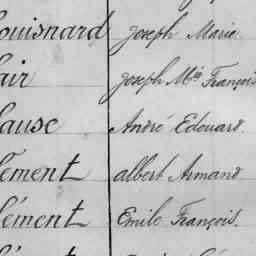 ouisnard Joseph Marie
air Joseph Mie François
ause André Edouard.
lement albert Armand
lément Emile François.